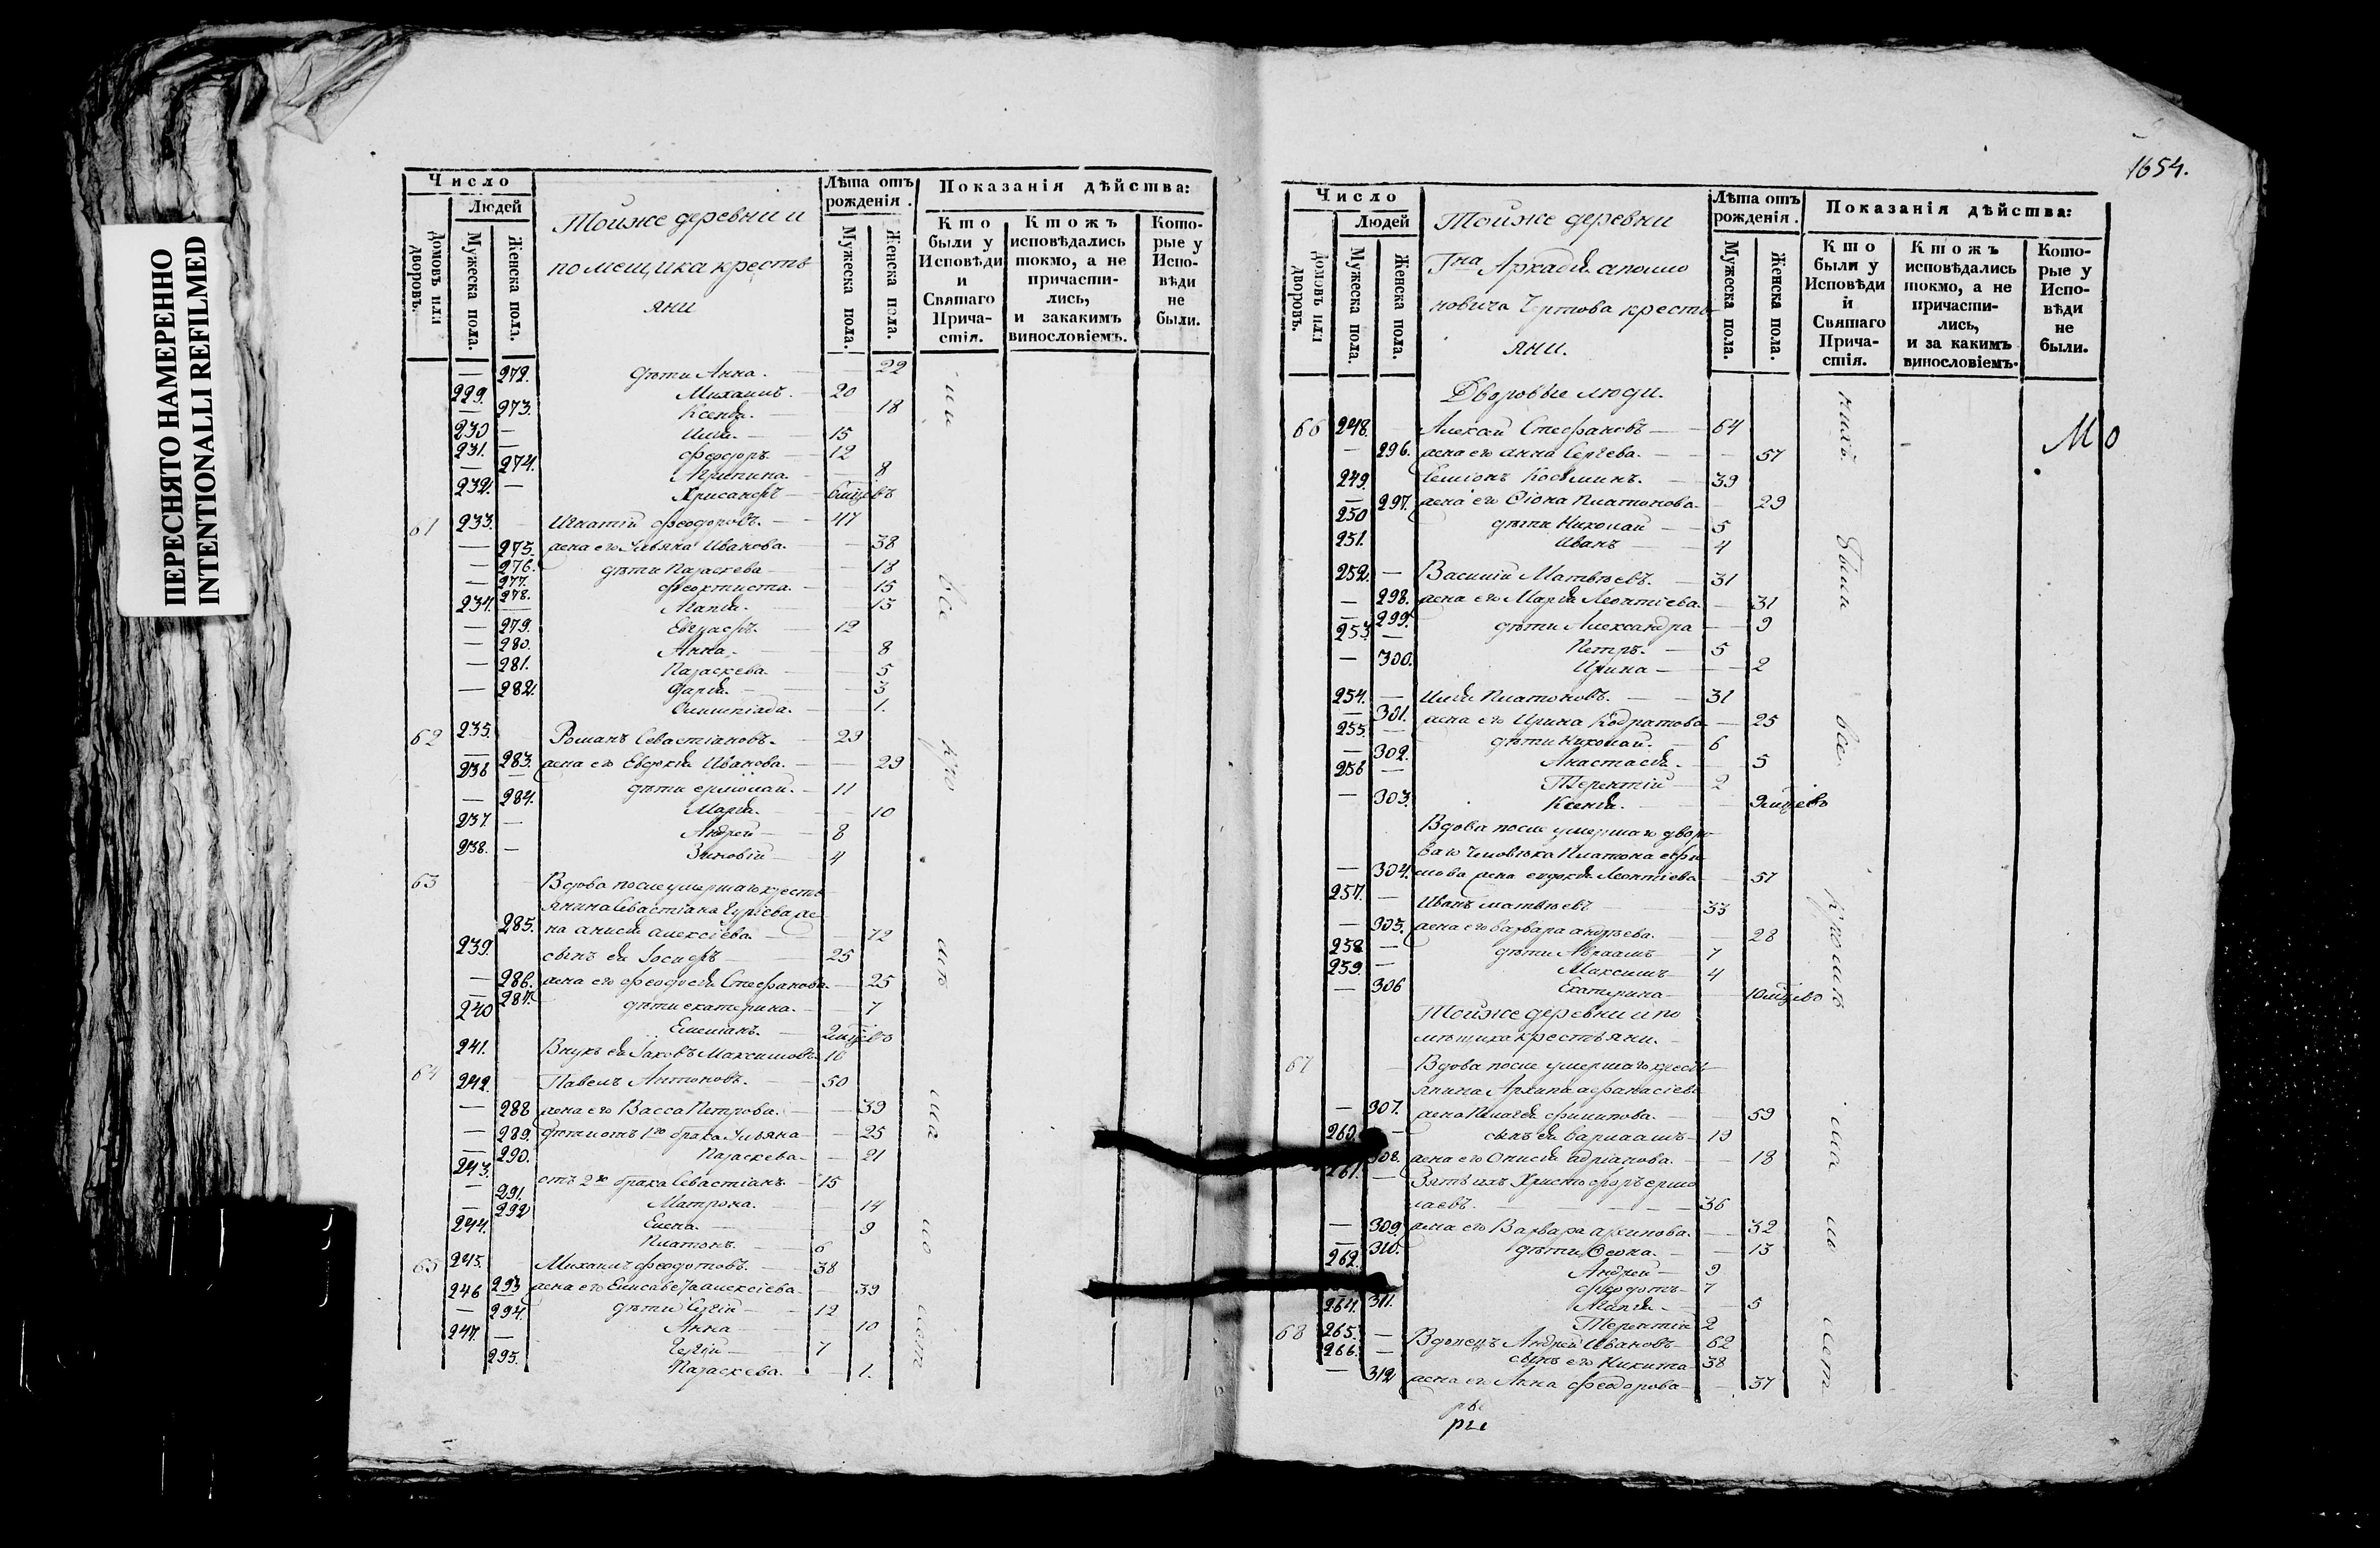 ПЕРЕСНЯТО НАМЕРЕННО
INTENTIONALLI REFILMED
Число
Людей
домовъ или дворовъ.
Мужеска пола.
Женска пола.
Тойже деревни и
помещика кресть
яни
Лѣта отъ рожденія.
Мужеска пола.
Женска пола.
Показанія дѣйства:
Кто были у Исповѣди и Святаго Прича-стія.
Ктожъ исповѣдались токмо, а не причасти-лись, и закакимъ винословіемъ.
Кото-рые у Испо-вѣди не были.
— 272. дѣти Анна. — 22
229. Михаилъ. — 20
— 273. Ксенія. — 18
230 — Илія. — 15
231. — Феодоръ. — 12
— 274. Агрипина. — 8
232. — Хрисанфъ — 6 мцовъ
61 233. Игнатій Феодоровъ. — 47
— 275. жена его Ульяна Иванова. — 38
— 276. дѣти Параскева — 18
— 277. Феоктиста. — 15
278. Агапія. — 13
234. — Евграфъ. — 12
— 279. Анна. — 8
— 280. Параскева. — 5
— 281. Дарія. — 3
— 282. Олимпіада. — 1.
62 235. Романъ Севастіановъ. — 29
— 283. жена его Евдокія Иванова. — 29
236 — дѣти Ермолай. — 11
— 284. Марія. — 10
237 — Андрей — 8
238. — Зиновій — 4
63 Вдова после умершаго кресть
янина Севастіана Гуріева же
285. на Анисія Алексіева. — 72
239. сынъ ея Іосифъ — 25
— 286. жена его Феодосія Стефанова. — 25
— 287. дѣти Екатерина. — 7
240 Емеліанъ. — 2 мцовъ
241. Внукъ ея Іаковъ Максимовъ 16
64 242. Павелъ Антоновъ. — 50
— 288 жена его Васса Петрова. — 39
— 289. дѣти отъ 1го брака Ульяна — 25
— 290. Параскева — 21
243. отъ 2го брака Севастіанъ — 15
— 291. Матрона. — 14
— 292 Елена. — 9
244. Платонъ. — 6
65 245. Михаилъ Феодотовъ. — 38
293 жена его Елисавета Алексіева — 39
246 — дѣти Сергій — 12
— 294. Анна — 10
247. — Сергій — 7
295. Параскева. — 1.
1654.
Число
Людей
домовъ или дворовъ.
Мужеска пола.
Женска пола.
Тойже деревни
Гна Аркадія
новича Чертова кресть
яни.
Лѣта отъ рожденія.
Мужеска пола.
Женска пола.
Показанія дѣйства:
Кто были у Исповѣди и Святаго Прича-стія.
Ктожъ исповѣдались токмо, а не причасти-лись, и за какимъ винословіемъ.
Кото-рые у Испо-вѣди не были.
Дворовые люди.
66 248. Алексій Стефановъ — 64
— 296. жена его Анна Сергеева. — 57
249. Симіонъ Косминъ. — 39
— 297. жена его Платонова — 29
250 дѣти Николай — 5
251. Иванъ — 4
252. — Василій Матвѣевъ. — 31
— 298. жена его Марія Леонтіева. — 31
299. дѣти Александра — 9
253. — Петръ. — 5
— 300. Ирина — 2
254. — Илія Платоновъ. — 31
— 301. жена его Ирина Кодратова — 25
255. — дѣти Николай. — 6
— 302. Анастасія. — 5
256 — Терентій — 2
— 303. Ксенія. — 9 мцевъ
Вдова после умершаго дворо
ваго человѣка Платона Ефи
— 304. мова жена Леонтіева — 57
257. — Иванъ Матвѣевъ — 33
— 305. жена его Варвара Андреева. — 28
258. — дѣти Авраамъ — 7
259. — Максимъ — 4
— 306 Екатерина — 10 мцевъ
Тойже деревни и по
мѣщика крестьяни.
67 Вдова после умершаго кресть
янина Архипа Афанасіева
— 307. жена Пелагія Филипова. — 59
260. — сынъ ея Варлаамъ — 19
308. жена его Онисія Адріанова. — 18
261. — Зять ихъ Христофоръ Ермо
лаевъ. — 36
— 309. жена его Варвара Архипова. — 32
— 310. дѣти Феона. — 13
262. Андрей — 9
Феодотъ — 7
311. Агапія. — 5
264. Терентій 2
68 265. — Вдовецъ Андрей Ивановъ — 62
266. — сынъ его Никита — 38
— 312 жена его Анна Феодорова — 37
ры